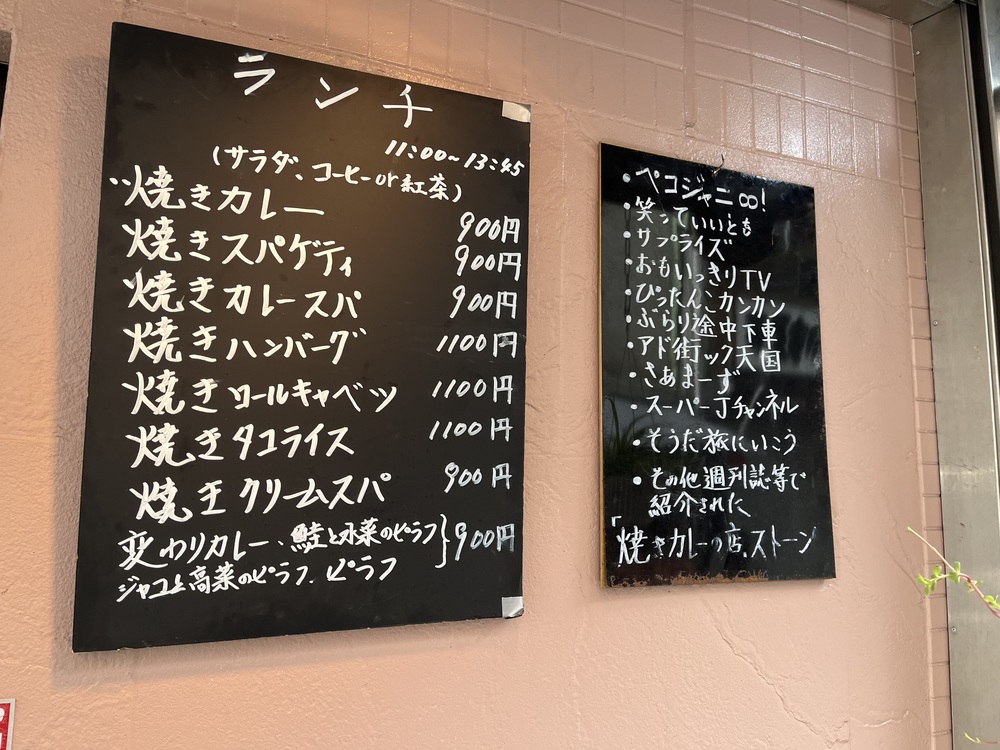 ランチ
11:00~13:45
(サラダ、コーヒーor紅茶)
焼きカレー 900円
焼きスパゲティ 900円
焼きカレースパ 900円
焼きハンバーグ 1100円
焼きロールキャベツ 1100円
焼きタコライス 1100円
焼きクリームスパ 900円
変わりカレー、鮭と水菜のピラフ}900円
ジャコと高菜のピラフ、ピラフ
・ペコジャニ∞!
・笑っていいとも
・サプライズ
・おもいっきりTV
・ぴったんこカンカン
・ぶらり途中下車
・アド街ック天国
・さぁまーず
・スーパーJチャンネル
・そうだ旅にいこう
・その他週刊誌等で
紹介された
「焼きカレーの店、ストーン」